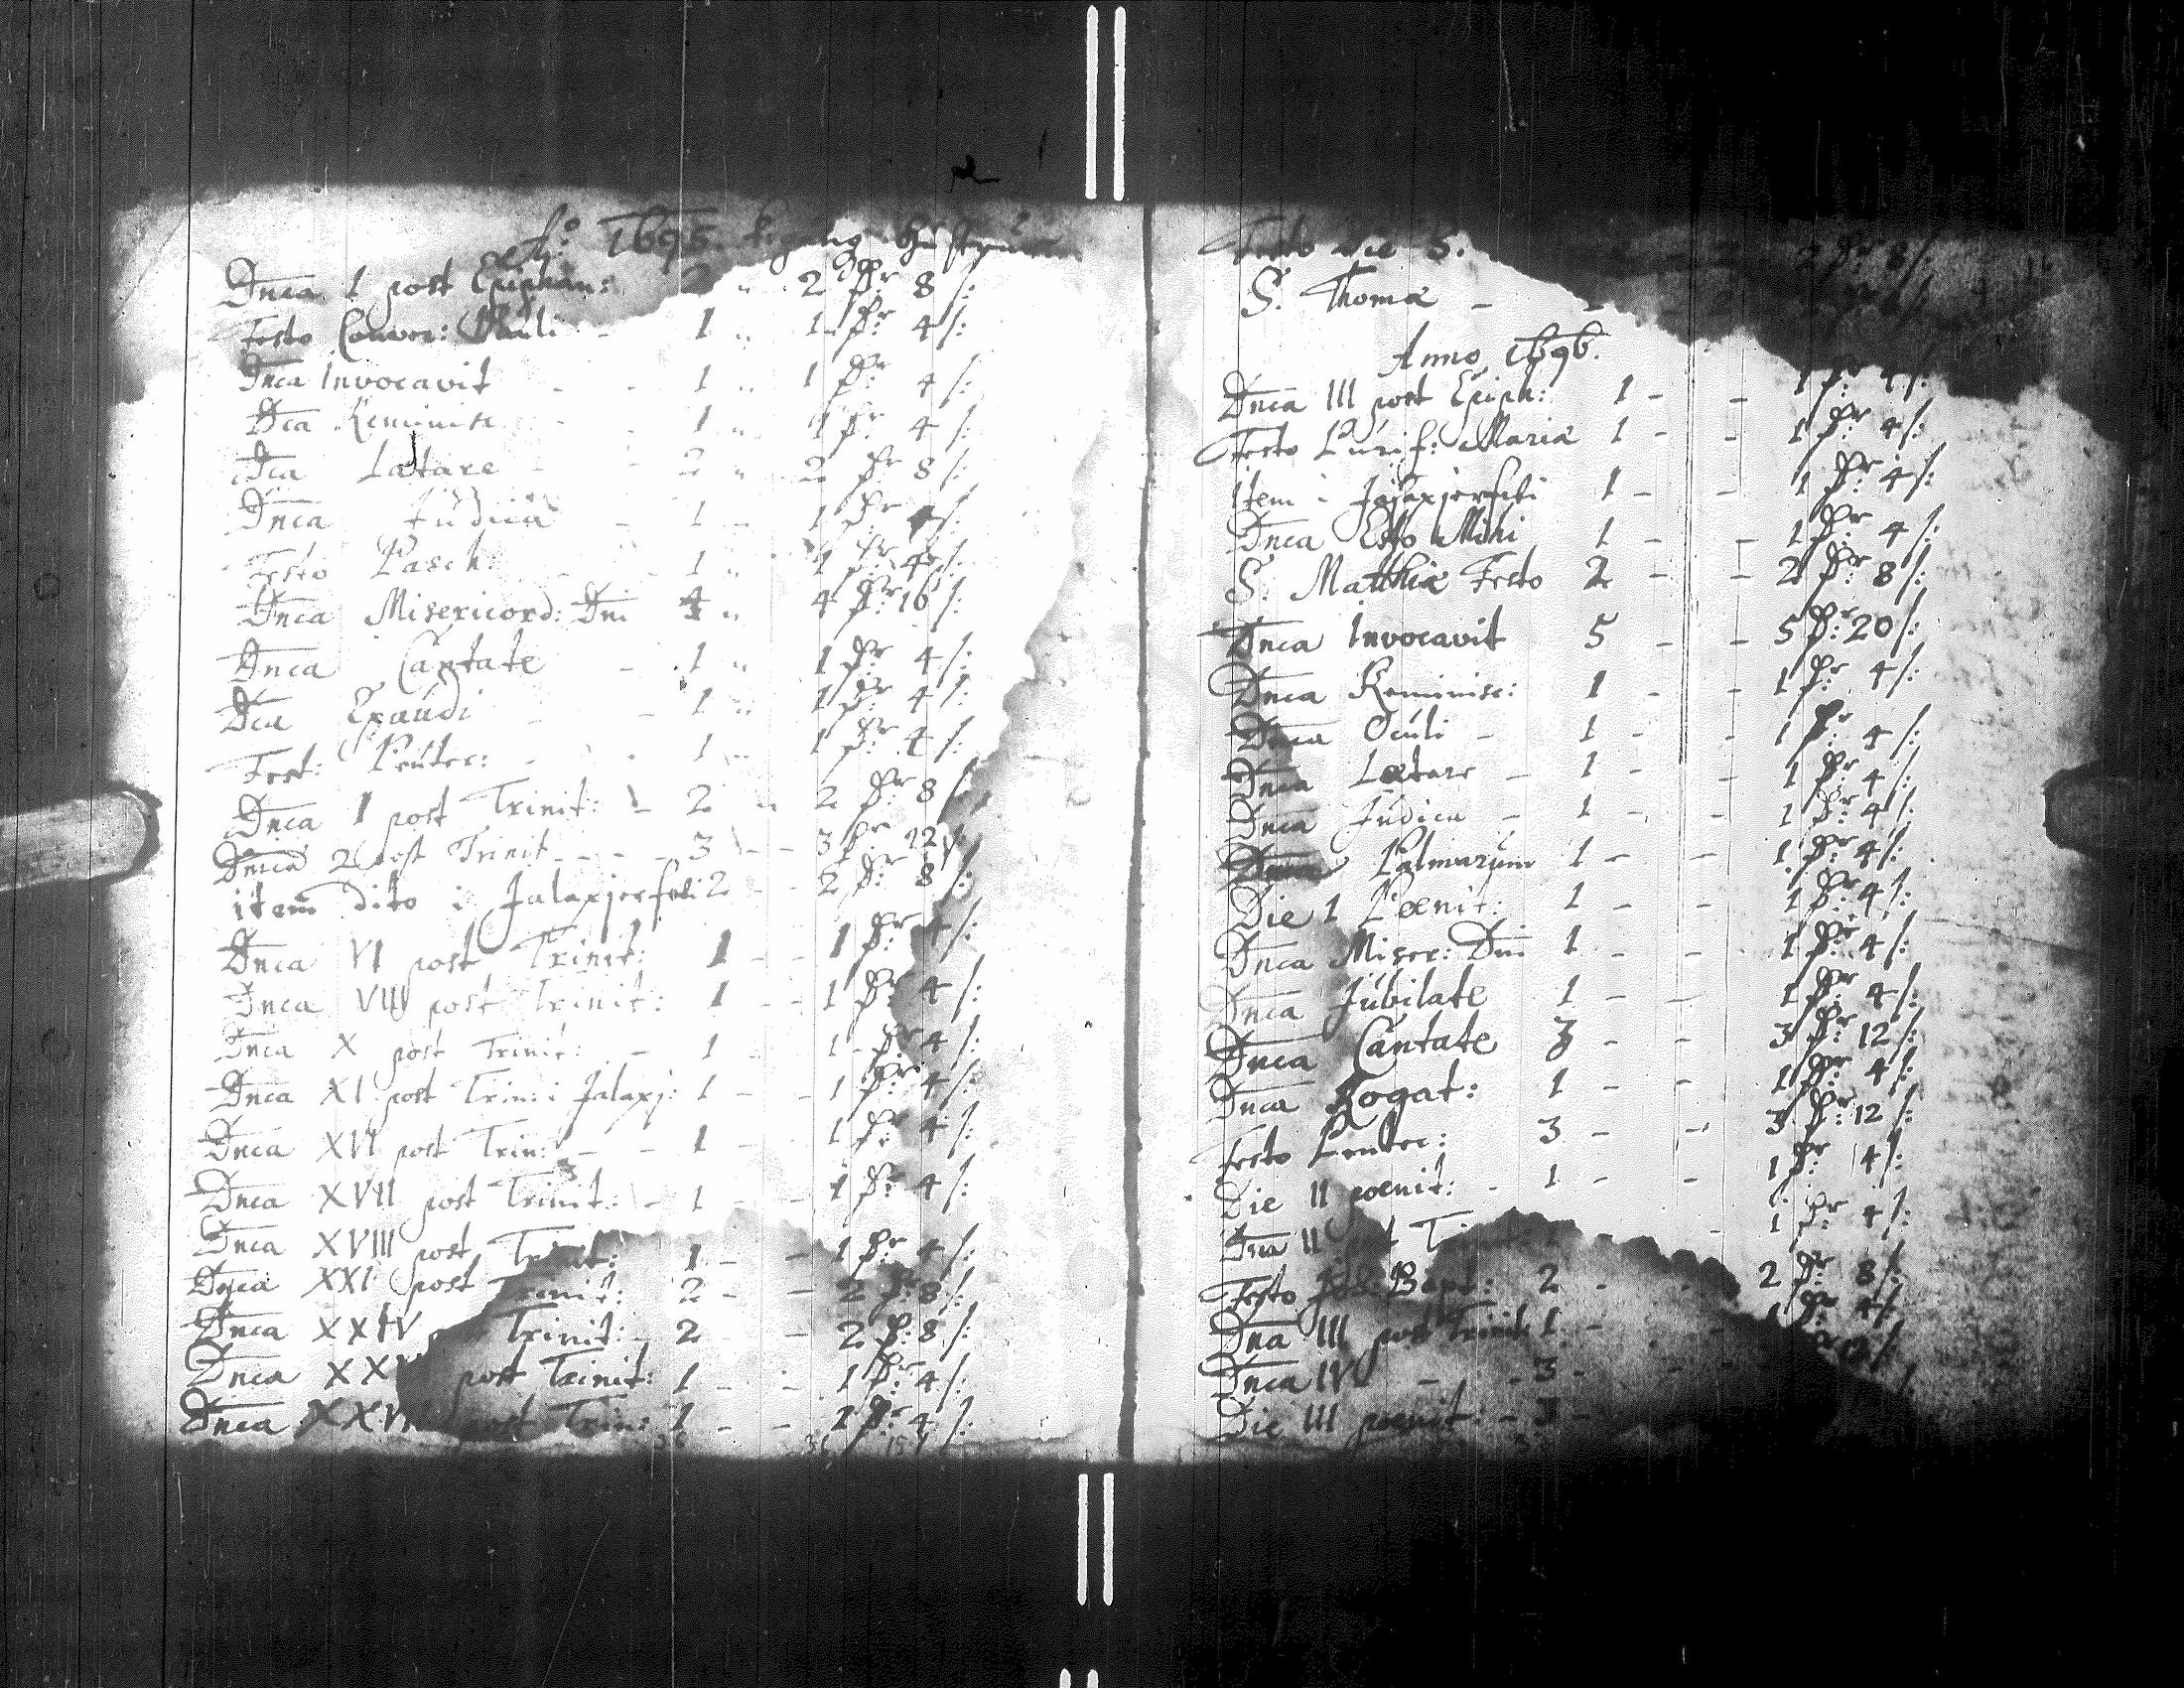 Ao: 1695.
Dnca 1 post Epiphan: 2 „ 2 Pr: 8 /:
Festo Conver: Pauli - 1 „ 1 Pr: 4 /:
Dnca Invocavit - - 1 „ 1 Pr: 4 /:
Dca Reminisc - 1 „ 1 Pr: 4 /:
Dca Lætare - - 2 „ 2 Pr: 8 /:
Dnca Judica - 1 „ 1 Pr: 4 /:
Festo Pasch: - - 1 „ 1 Pr: 4 /:
Dnca Misericord: Dni 4 „ 4 Pr: 16 /:
Dnca Cantate - 1 „ 1 Pr: 4 /:
Dca Exaudi - - 1 „ 1 Pr: 4 /:
Fest: Pentec: - - 1 „ 1 Pr: 4 /:
Dnca 1 post Trinit: - 2 „ 2 Pr: 8 /:
Dnica 2 post Trinit - - - 3 - - 3 Pr: 12 /:
item dito i Jalaxjerfvi 2 - - 2 Pr: 8 /:
Dnca VI post Trinit: 1 - - 1 Pr: 4 /:
Dnca VIII post Trinit: 1 - - 1 Pr: 4 /:
Dnca X post Trinit: - 1 - 1 - Pr: 4 /:
Dnca XI post Trin: i Jalaxj: 1 - - 1 Pr: 4 /:
Dnca XVI post Trin: - - 1 - 1 Pr: 4 /:
Dnca XVII post Trinit: - 1 - - 1 Pr: 4 /:
Dnca XVIII post Trinit: 1 - - 1 Pr: 4 /:
Dnca XXI post Trinit: 2 - - 2 Pr: 8 /:
Dnca XXIV Trinit: - 2 - - 2 Pr: 8 /:
Dnca post Trinit: 1 - - 1 Pr: 4 /:
Dnca post Trin: 1 - - 1 Pr: 4 /:
Festo Die S. 2 Pr: 8 /:
S. Thomæ -
Anno 1696.
Dnca III post Epiph: 1 - - 1 Pr: 4 /:
Festo Purif: Mariæ 1 - - 1 Pr: 4 /:
Item i Jalaxjerfvi 1 - - 1 Pr: 4 /:
Dnca Esto Mihi 1 - - 1 Pr: 4 /:
S. Matthiæ Festo 2 - - 2 Pr: 8 /:
Dnca Invocavit 5 - - 5 Pr: 20 /:
Dnca Reminisc: 1 - - 1 Pr: 4 /:
Dnca Oculi - 1 - - 1 Pr: 4 /:
Dnca Lætare - 1 - - 1 Pr: 4 /:
Dnca Judica - 1 - - 1 Pr: 4 /:
Dnca Palmarum 1 - - 1 Pr: 4 /:
Die 1 Poenit: 1 - - 1 Pr: 4 /:
Dnca Miser: Dni 1 - - 1 Pr: 4 /:
Dnca Jubilate 1 - - 1 Pr: 4 /:
Dnca Cantate 3 - - 3 Pr: 12 /:
Dnca Rogat: 1 - - 1 Pr: 4 /:
Festo Pentec: 3 - - 3 Pr: 12 /:
Die II poenit: - 1 - - 1 Pr: 4 /:
Dnca II - 1 Pr: 4 /:
Festo Bapt: 2 - - 2 Pr: 8 /:
Dnca III post Trinit 1 - - 1 Pr: 4 /:
Dnca IV - - 3 -
Die III poenit: - 3 -